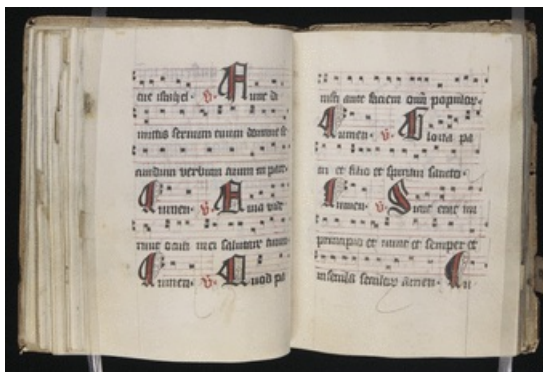 tue israhel. V. Nunc di
mittis servum tuum domine se
cundum verbum tuum in pace
Lumen. V. Quia vide
runt oculi mei salutare tuum
Lumen. V. Quod pa
rasti ante faciem oīm populoꝝ.
Lumen. V. Gloria pa
tri et filio et spiritui sancto.
Lumen. V. Sicut erat in
principio et nunc et semper et
in secula seculoꝝ amen. Lu